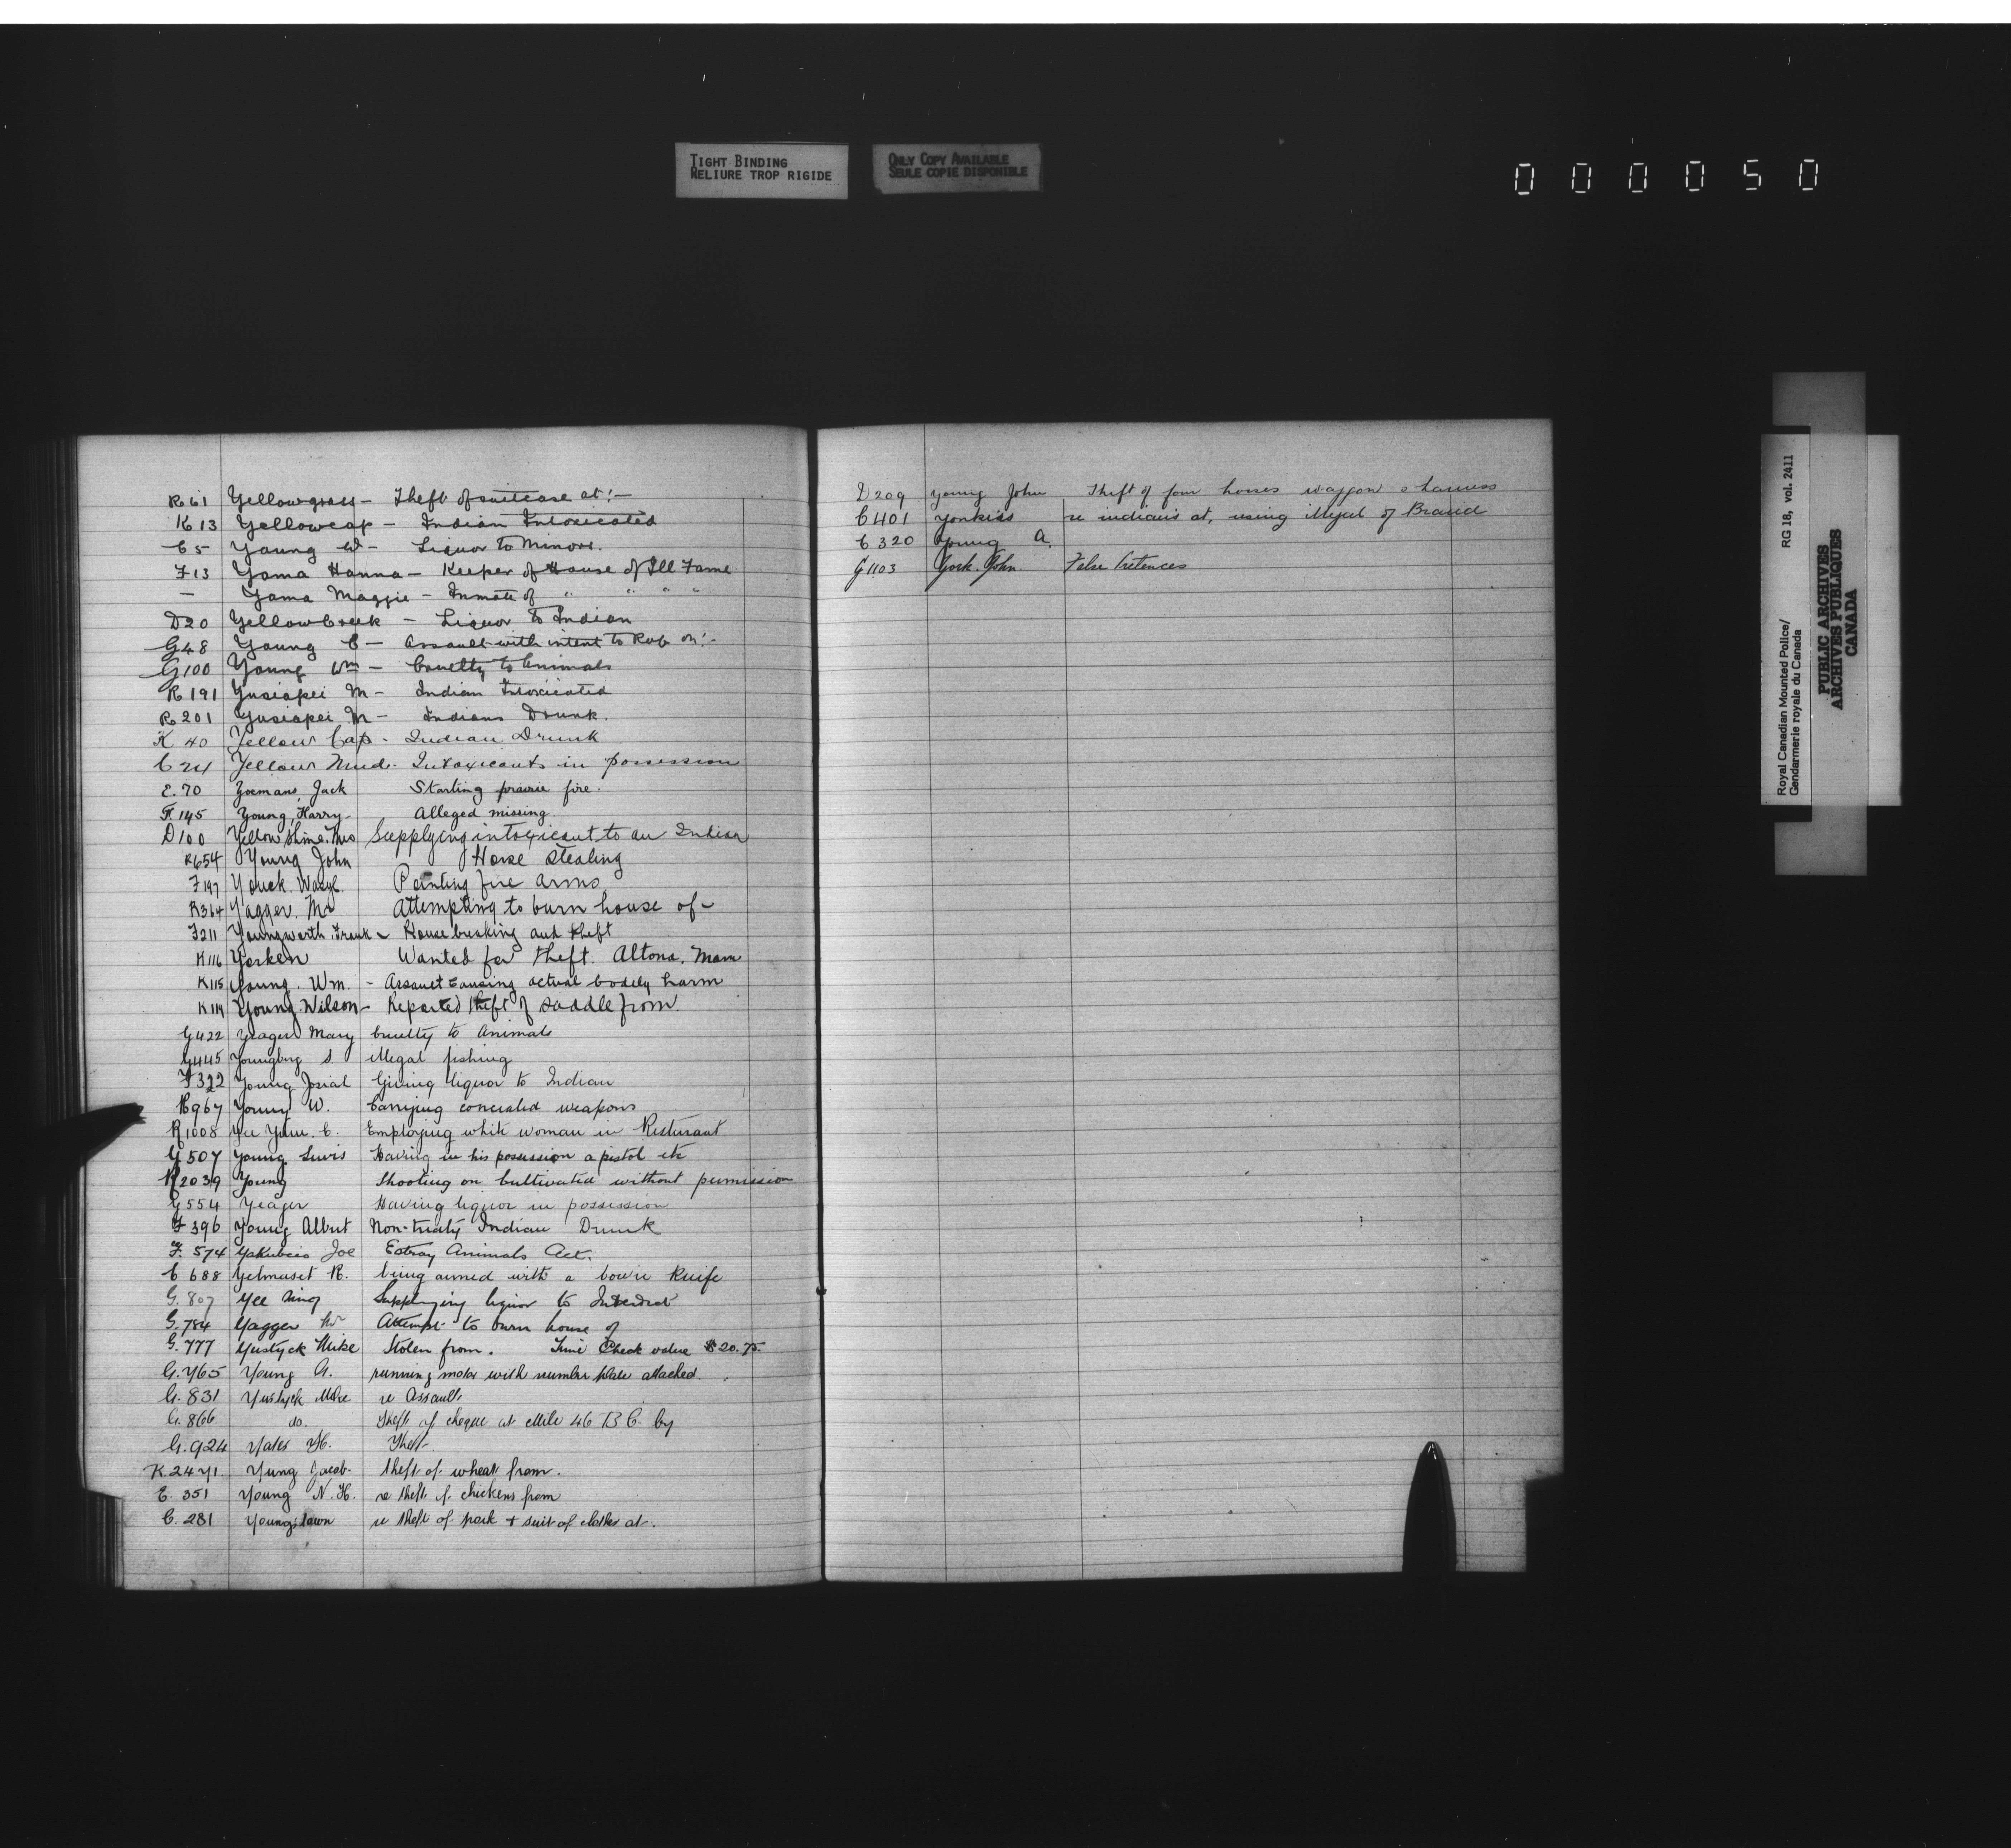 TIGHT BINDING
RELIURE TROP RIGIDE
ONLY COPY AVAILABLE
SEULE COPIE DISPONIBLE
000050
R 61 Yellowgrass - Theft of suitcase at:-
K 13 Yellowcap - Indian Intoxicated
C 5 Young W - Liquor to Minors.
F 13 Yama Hanna - Keeper of House of Ill Fame
— Yama Maggie - Inmate of " " " "
D 20 Yellow Creek - Liquor to Indian
G 48 Young C - Assault with intent to Rob on:-
G 100 Young Wm - Cruelty to Animals
R 191 Yusiapei M - Indian Intoxicated
R 201 Yusiapei M - Indians Drunk.
K 40 Yellow Cap - Indian Drunk
C 24 Yellow Mud - Intoxicants in possession
E. 70 Yoemans, Jack Starting prairie fire.
F. 145 Young, Harry - Alleged missing.
D 100 Yellow Shine. Mrs Supplying intoxicant to an Indian
R 654 Young John Horse Stealing
F 197 Youck. Wasyl. Pointing fire arms
R 364 Yagger. Mr Attempting to burn house of -
F 211 Youngworth. Frank - House breaking and theft
K 116 Yorken Wanted for theft. Altona. Mam
K 115 Young. Wm. - Assault causing actual bodily harm
K 114 Young. Wilson - Reported theft of saddle from.
G 422 Yeager Mary Cruelty to Animals
G 445 Youngberg S. illegal fishing
F 322 Young Josiah Giving liquor to Indian
R 967 Young W. Carrying concealed weapons
R 1008 Yee Yuen. C. Employing white woman in Resturant
G 507 Young Lewis Having in his possession a pistol etc
R 2039 Young Shooting on Cultivated without permission
G 554 Yeager Having liquor in possession
F 396 Young Albert Non-treaty Indian Drunk
F. 574 Yakubeis Joe Estray Animals Act.
C 688 Yelmaset R. being armed with a bowie Knife
G. 807 Yee Supplying liquor to Interdict
G. 784 Yagger Mr Attempt to burn house of
G. 777 Yustyck Mike Stolen from. Time Check value $20.75
G. 765 Young A. running motor with number plate attached.
G. 831 Yustyck Mike re Assault.
G. 866 do. Theft of cheque at Mile 46 B.C. by
G. 924 Yates Theft.
K. 2471. Yung Jacob. theft of wheat from.
E. 351 Young N. H. re theft of chickens from
C. 281 Youngstown re theft of pork + suit of clothes at.
D 209 Young John Theft of four horses waggon & harness
C 401 Yonkiss re indians at, using illegal of Brand
C 320 Young A.
G 1103 York. John. False Pretences
Royal Canadian Mounted Police/ RG 18, vol. 2411
Gendarmerie royale du Canada
PUBLIC ARCHIVES
ARCHIVES PUBLIQUES
CANADA